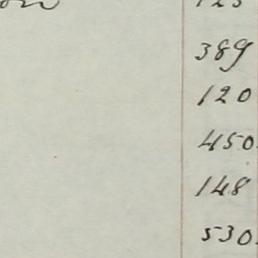 389
120
450.
148
530.